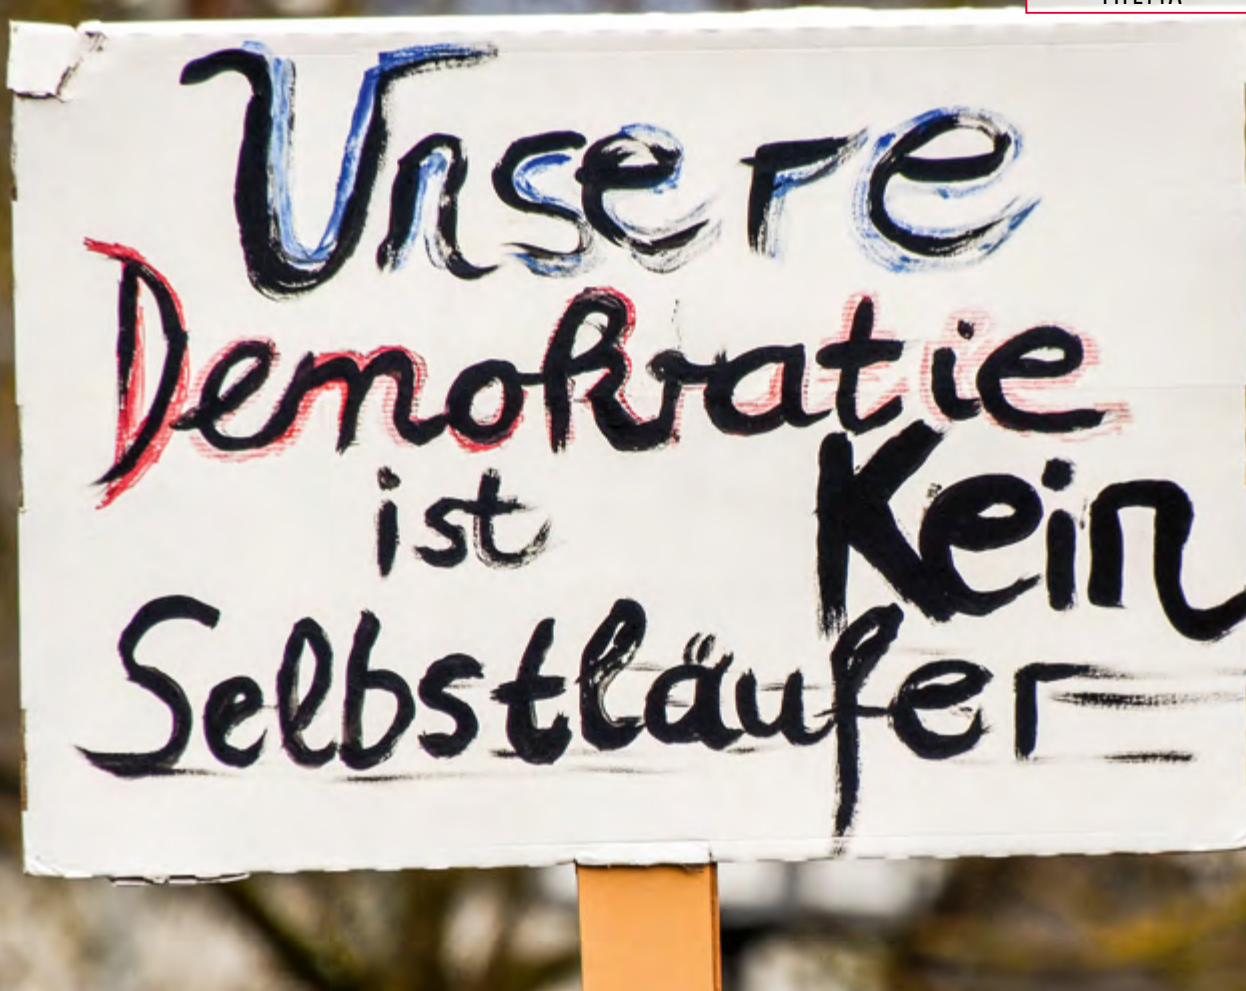 Unsere
Demokratie
ist Kein
Selbstläufer